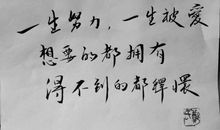 一生努力，一生被愛
想要的都擁有
得不到的都釋懷